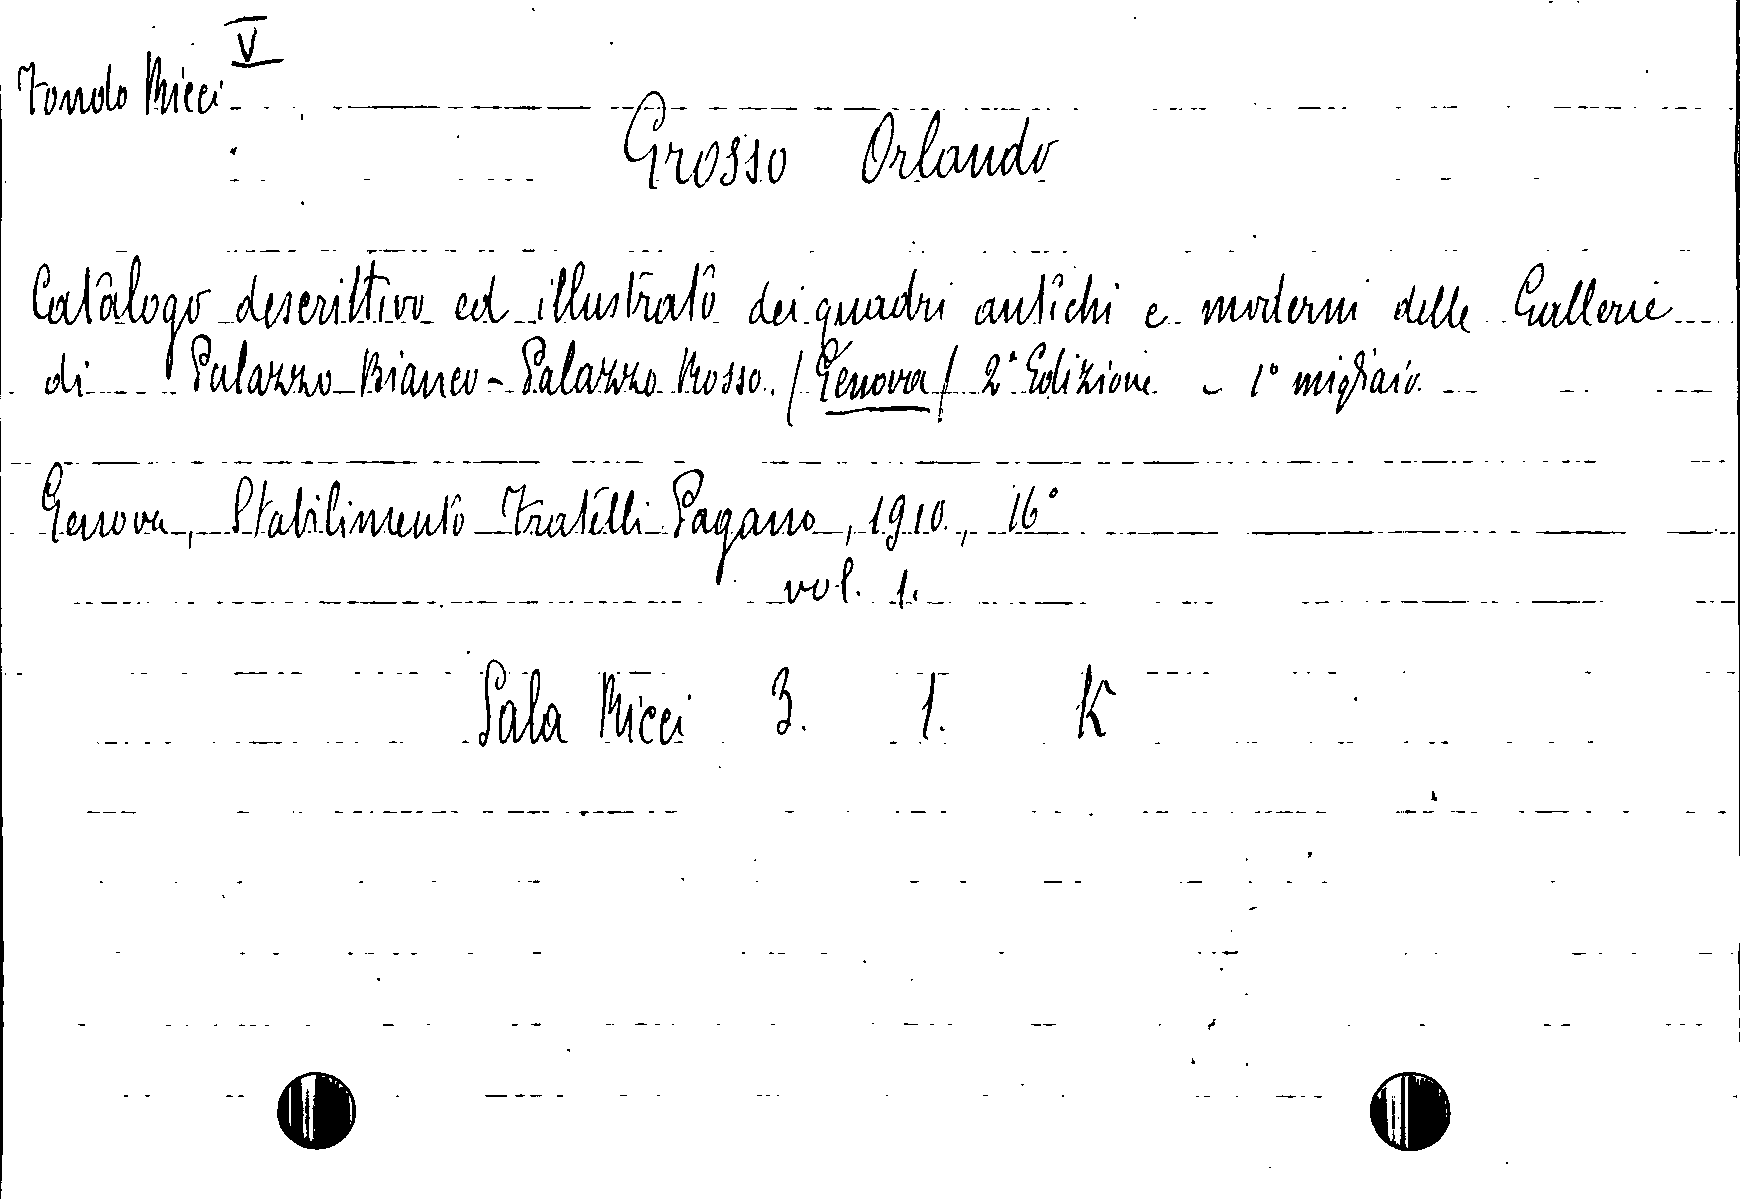 V
Fondo Ricci
Grosso Orlando
Catalogo descrittivo ed illustrato dei quadri antichi e moderni delle Gallerie
di Palazzo Bianco - Palazzo Rosso. / Genova / 2ª Edizione - 1° migliaio.
Genova, Stabilimento Fratelli Pagano, 1910., 16°
vol. 1.
Sala Ricci 3. 1. K